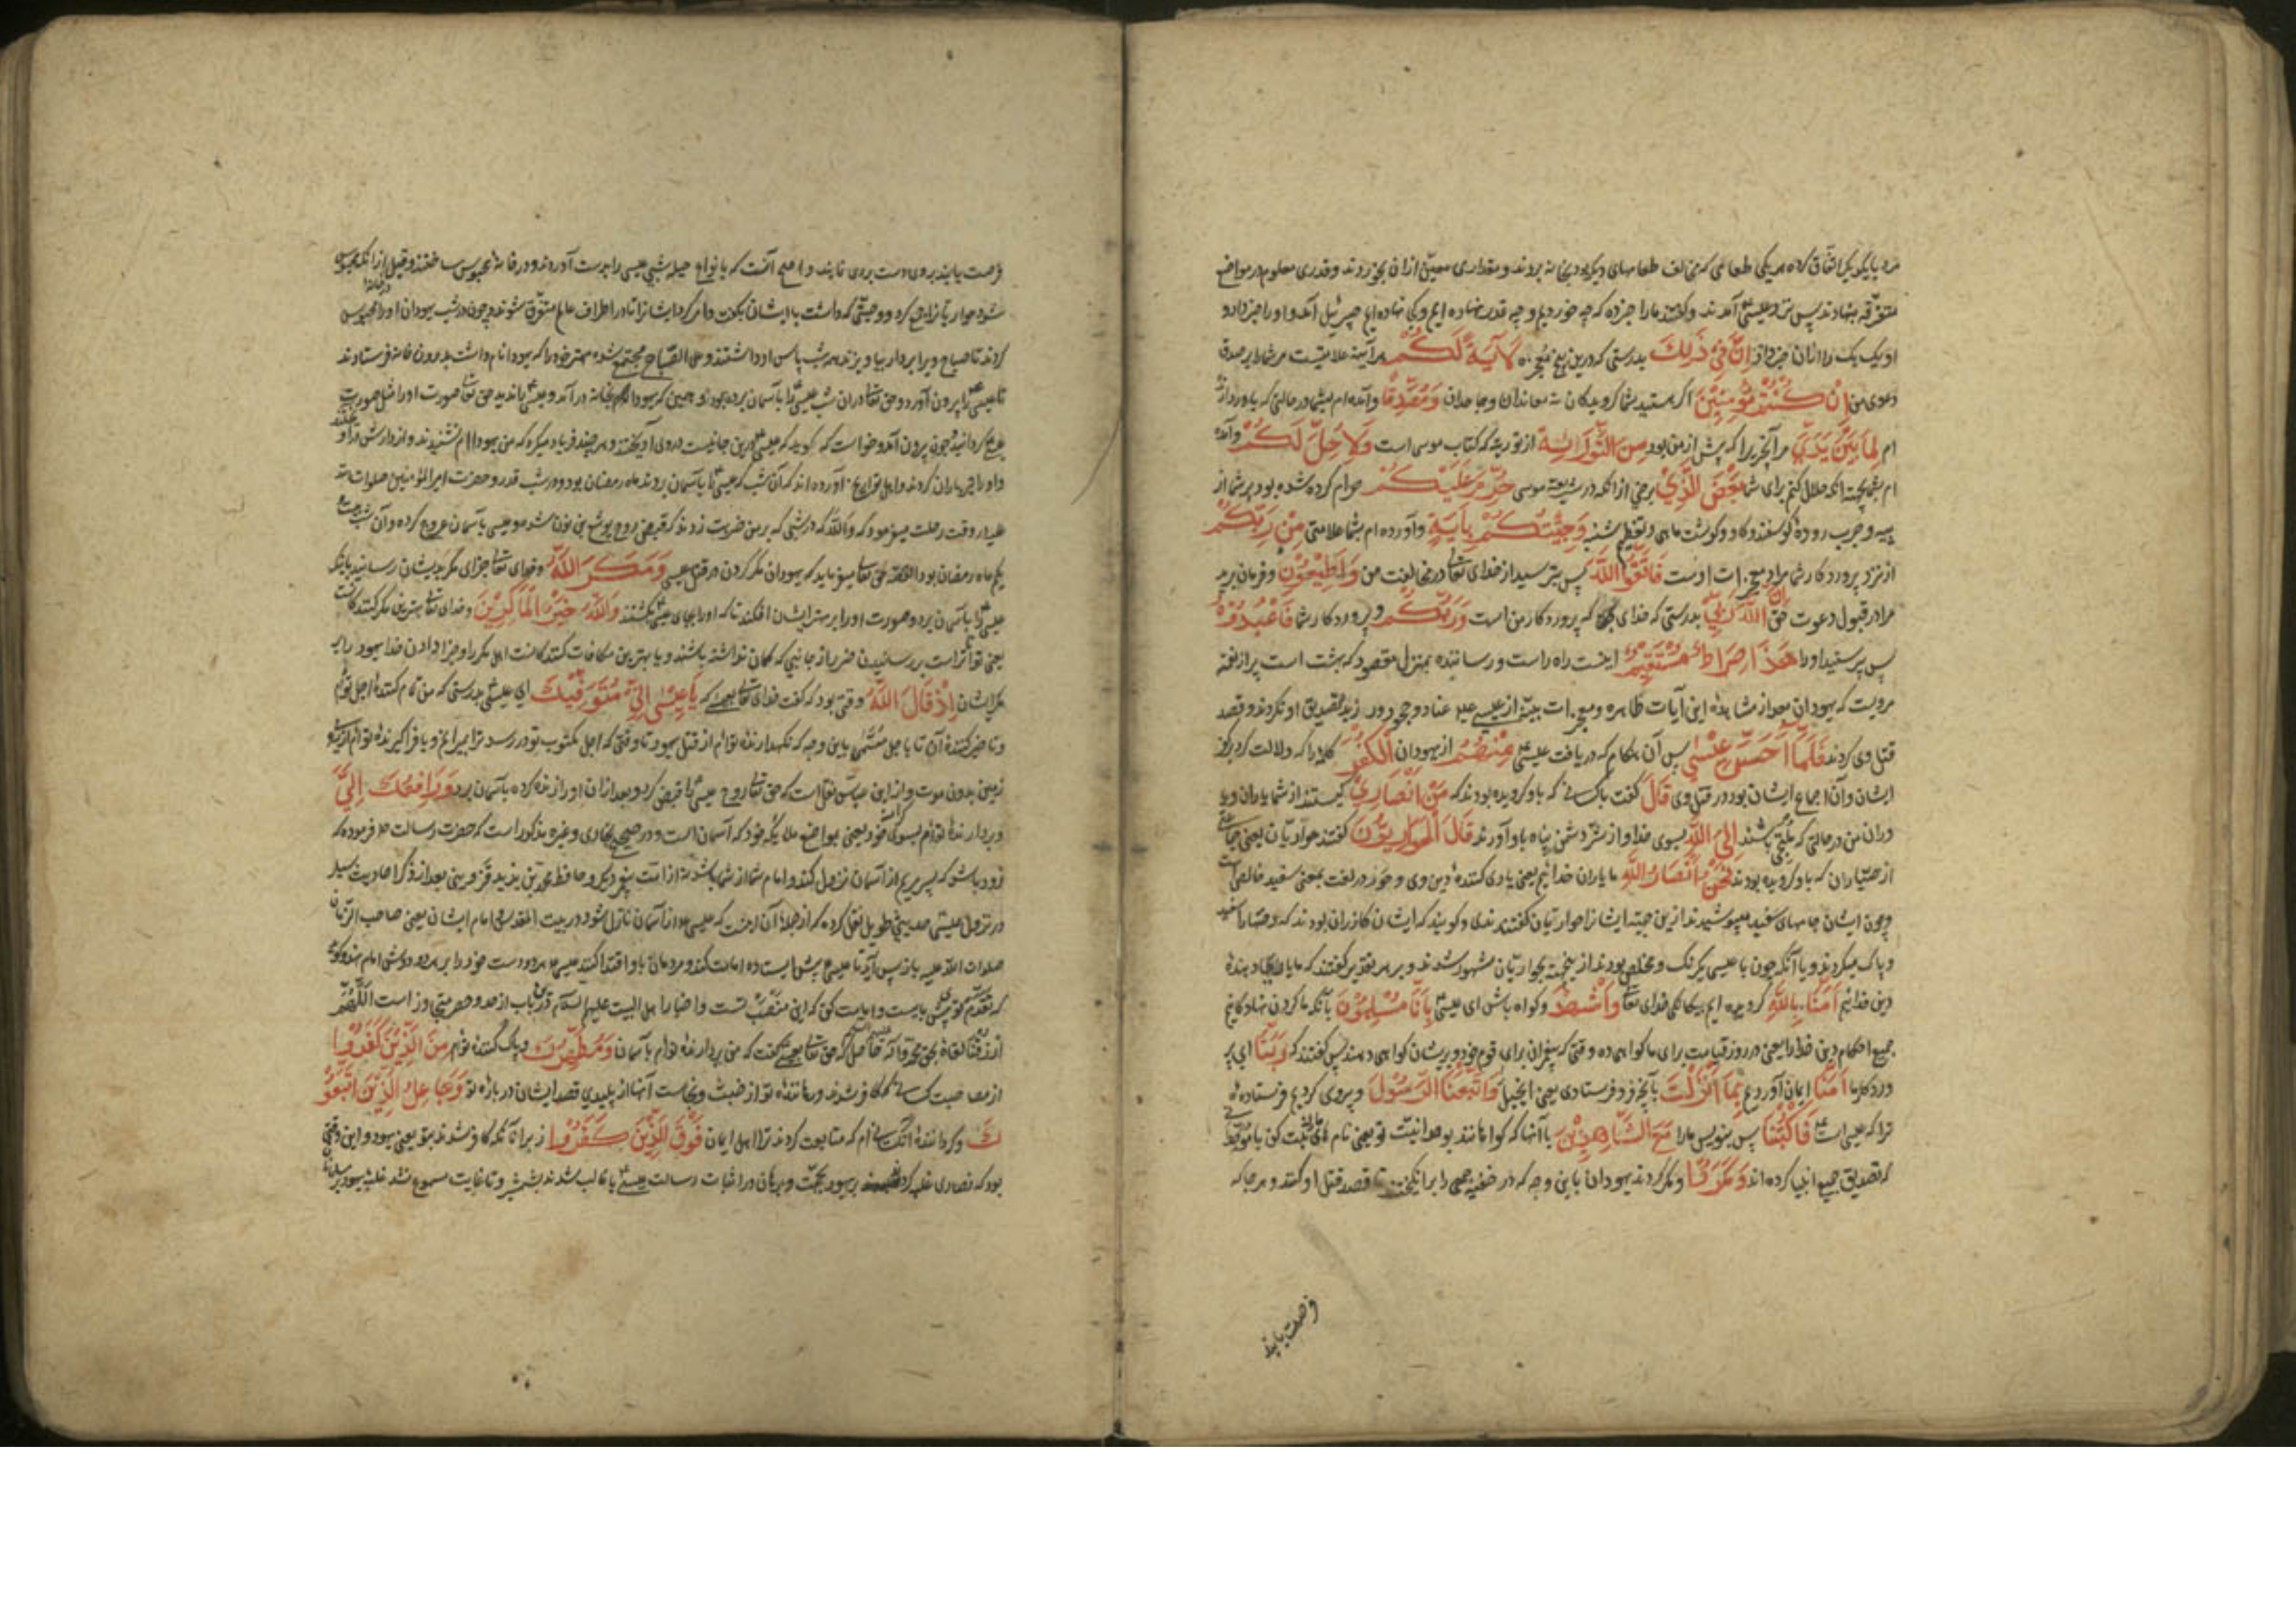 مرد با یکدیکر اتفاق کرده هر یکی طعامی که مخالف طعامهای دیکر بود بخانه بردند و مقداری معین از ان بخوردند و قدری معلوم در مواضع
متفرقه بنهادند پس نزد عیسی آمدند و کفتند مارا خبر ده که چه خوردیم و چه قدر نهاده ایم و کجا نهاده ایم جبرئیل آمد و او را خبر داد و
او یک یک را از ان خبر داد اِنَّ فی ذَلِكَ بدرستی که درین پنج معجزه لَآیَةً لَكُمْ هر آینه علامتیست مر شما را بر صدق
دعوی من اِنْ كُنْتُمْ مُؤْمِنِیْنَ اکر هستید شما کرویدکان نه معاندان و جاحدان وَمُصَدِّقًا و آمده ام بشما در حالتی که باور دارنده
ام لِمَا بَیْنَ یَدَیَّ مر آنچیز را که پیش از من بود مِنَ التَّوْرَاةِ از توریة که کتاب موسی است وَلِاُحِلَّ لَكُمْ و آمده
ام بشما بجهة انکه حلال کنم برای شما بَعْضَ الَّذِیْ برخی از انکه در شریعة موسی حُرِّمَ عَلَیْكُمْ حرام کرده شده بود بر شما از
پیه و چرب روده کوسفند و کاو و کوشت ماهی و تعظیم شنبه وَجِئْتُكُمْ بِآیَةٍ و آورده ام بشما علامتی مِنْ رَبِّكُمْ
از نزد پرورد کار شما مراد معجزات اوست فَاتَّقُوا اللهَ پس بترسید از خدای تعالی در مخالفت من وَاَطِیْعُوْنِ و فرمان برید
مرا در قبول دعوت حق اِنَّ اللهَ رَبِّیْ بدرستی که خدای که پروردکار من است وَرَبُّكُمْ و پروردکار شما فَاعْبُدُوْهُ
پس پرستید او را هَذَا صِرَاطٌ مُسْتَقِیْمٌ اینست راه راست و رساننده بمنزل مقصود که بهشت است پر از نعمة
مرویست که یهودان بعد از مشاهده این آیات ظاهره و معجزات بینه از عیسی علیه عناد و جحود ورزیده تصدیق او نکردند و قصد
قتل وی کردند فَلَمَّا اَحَسَّ عِیْسَی پس آن هنکام که دریافت عیسی مِنْهُمُ از یهودان الْكُفْرَ کلمه را که دلالت کرد بر کفر
ایشان و آن اجماع ایشان بود در قتل وی قَالَ کفت با کسانی که باو کرویده بودند که مَنْ اَنْصَارِیْ کیستند از شما یاران و یا
وران من در حالتی که ملتجی باشند اِلَی اللهِ بسوی خدا و از شر دشمن پناه باو آورند قَالَ الْحَوَارِیُّوْنَ کفتند حواریان یعنی جماعتی
از صیادان که باو کرویده بودند نَحْنُ اَنْصَارُ اللهِ ما یاران خدائیم یعنی یاری کننده دین وی و حور در لغت بمعنی سفید خالص است
و چون ایشان جامهای سفید میپوشیدند از این جهة ایشانرا حواریان کفتندی و کویند که ایشان کازران بودند که جامها را سفید
و پاک میکردند و یا آنکه چون با عیسی یکرنک و مخلص بودند از ینجهت بحواریان مشهور شدند و بر هر تقدیر کفتند که ما یاری دهنده
دین خدائیم آمَنَّا بِاللهِ کرویده ایم بیکانکی خدای تعالی وَاشْهَدْ و کواه باش ای عیسی بِاَنَّا مُسْلِمُوْنَ بآنکه ما کردن نهادکانیم
جمیع احکام دین خدا را یعنی در روز قیامت برای ما کواهی ده وقتی که پیغمبران برای قوم خود و بریشان کواهی دهند پس کفتند که رَبَّنَا ای پر
وردکار ما آمَنَّا ایمان آوردیم بِمَا اَنْزَلْتَ بآنچه فرو فرستادی یعنی انجیل وَاتَّبَعْنَا الرَّسُوْلَ و پیروی کردیم فرستاده
ترا که عیسی است فَاكْتُبْنَا پس بنویس مارا مَعَ الشَّاهِدِیْنَ با آنها که کواهانند بوحدانیت تو یعنی نام ثبت کن با
که تصدیق جمیع انبیا کرده اند وَمَكَرُوْا و مکر کردند یهودان باین وجه که در خفیه جمعی را برانکیختند تا قصد قتل او کنند و هر جا که
فرصت یابند
فرصت یابند بروی دست بردی نمایند و اصح آنست که بانواع حیله شبی عیسی را بدست آوردند و در خانه محبوس ساختند و قبل از انکه محبوس
در خانه
شود حواریانرا جمع کرد و وصیتی که داشت با ایشان بکفت و امر کرد ایشانرا تا در اطراف عالم متفرق شوند و چون در شب یهودان او را محبوس
کردند تا صباح ویرا بردار بیاویزند همه شب پاس او داشتند و علی الصباح مجتمع شده مهتر خود را که یهودا نام داشت بدرون خانه فرستادند
تا عیسی را بیرون آورد و حق تعالی در ان شب عیسی را بآسمان برده بود و همین که یهودا بخانه در آمد و عیسی را ندید حق تعالی صورت او را مثل صورت
عیسی کردانید و چون بیرون آمد و خواست که کوید که عیسی درین جا نیست در وی آویختند و هر چند فریاد میکرد که من یهودا ام نشنیدند و از دارش در آویختند
و او را تیر باران کردند و اهل تواریخ آورده اند که آن شب که عیسی را بآسمان بردند ماه رمضان بود و در شب قدر و حضرت امیر المؤمنین صلوات الله
علیه در وقت رحلت میفرمود که والله که در شبی که بر من ضربت زدند که قبض روح یوشع بن نون شد و عیسی بآسمان عروج کرده و آن شب بیست و
یکم ماه رمضان بود القصه حق تعالی میفرماید که یهودان مکر کردند در قتل عیسی وَمَكَرَ اللهُ و خدای تعالی جزای مکر بدیشان رسانید بآنکه
عیسی را بآسمان برد و صورت او را بر مهتر ایشان افکند تا که او را بجای عیسی بکشتند وَاللهُ خَیْرُ الْمَاكِرِیْنَ و خدای تعالی بهترین مکر کنندکانست
یعنی تواناتر است بر رسانیدن ضرر از جانبی که کمان نداشته باشند و یا بهترین مکافات کنندکانست اهل مکر را و جزا دادن خدا یهود را به
مکر ایشان اِذْ قَالَ اللهُ وقتی بود که کفت خدای تعالی که یَا عِیْسَی اِنِّیْ مُتَوَفِّیْكَ ای عیسی بدرستی که من تمام کننده اجل توام
و تاخیر کننده آن تا باجل مسمی باین وجه که نکهدارنده توام از قتل یهود تا وقتی که اجل مکتوب تو در رسد ترا بمیرانم و یا فراکیرنده توام از روی
زمین بدون موت و از ابن عباس نقل است که حق تعالی روح عیسی را قبض کرد و بعد از ان او را زنده کرده بآسمان برد وَرَافِعُكَ اِلَیَّ
و بردارنده توام بسوی خود یعنی بمواضع ملایکه خود که آسمان است و در صحیح بخاری و غیره مذکور است که حضرت رسالت فرموده که
زود باشد که پسر مریم از آسمان نزول کند و امام شما از شما باشد نه از امت پیغمبر دیکر و حافظ محمد بن یزید قزوینی بعد از ذکر احادیث بسیار
در نزول عیسی حدیثی طویل نقل کرده که از جمله آن اینست که عیسی از آسمان نازل شود در بیت المقدس و امام ایشان یعنی صاحب الزمان
صلوات الله علیه باز پس آید تا عیسی پیش ایستاده امامت کند و مردمان باو اقتدا کنند عیسی هر دو دست خود را بر هر دو دوش امام نهد و کوید
که تقدم تو پیش بایست و امامت کن که این منصب تست و اخبار اهل البیت علیهم السلام درین باب از حد و حصر متجاوز است اللهم
ارزقنا لقاه بحق محمد وآله حق تعالی کفت که من بردارنده توام بآسمان وَمُطَهِّرُكَ و پاک کننده توام مِنَ الَّذِیْنَ كَفَرُوْا
از مصاحبت کسانی که کافر شدند و رهاننده تو از خبث و نجاست آنها از پلیدی قصد ایشان درباره تو وَجَاعِلُ الَّذِیْنَ اتَّبَعُوْ
كَ و کرداننده آنکسانی ام که متابعت کردند ترا اهل ایمان فَوْقَ الَّذِیْنَ كَفَرُوْا زبر آنانکه کافر شدند بتو یعنی یهود و این وقتی
بود که نصاری غلبه کردند بر یهود بحجت و برهان در اثبات رسالت عیسی یا غالب شدند بشمشیر و تا غایت مسموع نشد غلبه یهود بر